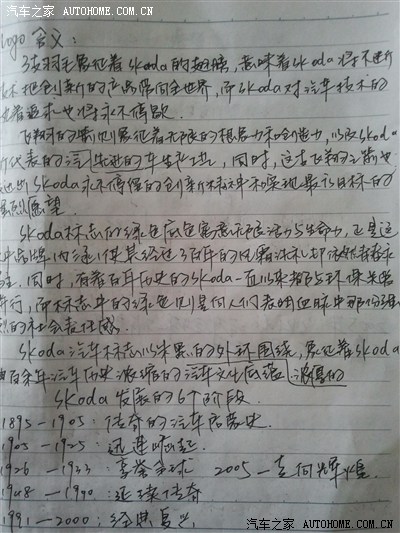 汽车之家 AUTOHOME.COM.CN
logo含义:
3支羽毛象征着Skoda的翅膀,意味着Skoda将不断
把创新的产品带向全世界,而Skoda对汽车技术的
追求也将永不停歇.
飞翔的箭则象征着无限的根创力和创造力,以及Skoda
所代表的汽先进的车生产工艺,同时,这支飞翔之箭也
Skoda永不停得的创新精神和实现最终目标的
强烈愿望.
Skoda标志的绿色底色寓意无限活力与生命力,正是这
品牌内涵使其经过百年的风霜洗礼却依然
同时,有着百年历史的Skoda一直以来都与环保
并行,而标志中的绿色则是向人们表明血脉中那份强
烈的社会责任感.
Skoda汽车标志以朱黑的外环围绕,象征着Skoda
百余年汽车历史浓缩的汽车文化底蕴 浓厚的
Skoda发展的6个阶段.
1895—1905:传奇的汽车启蒙史.
1905—1925:迅速崛起.
1926—1933:享誉全球 2005—走向辉煌.
1948—1990:延续传奇
1991—2000:经典复兴.
汽车之家 AUTOHOME.COM.CN